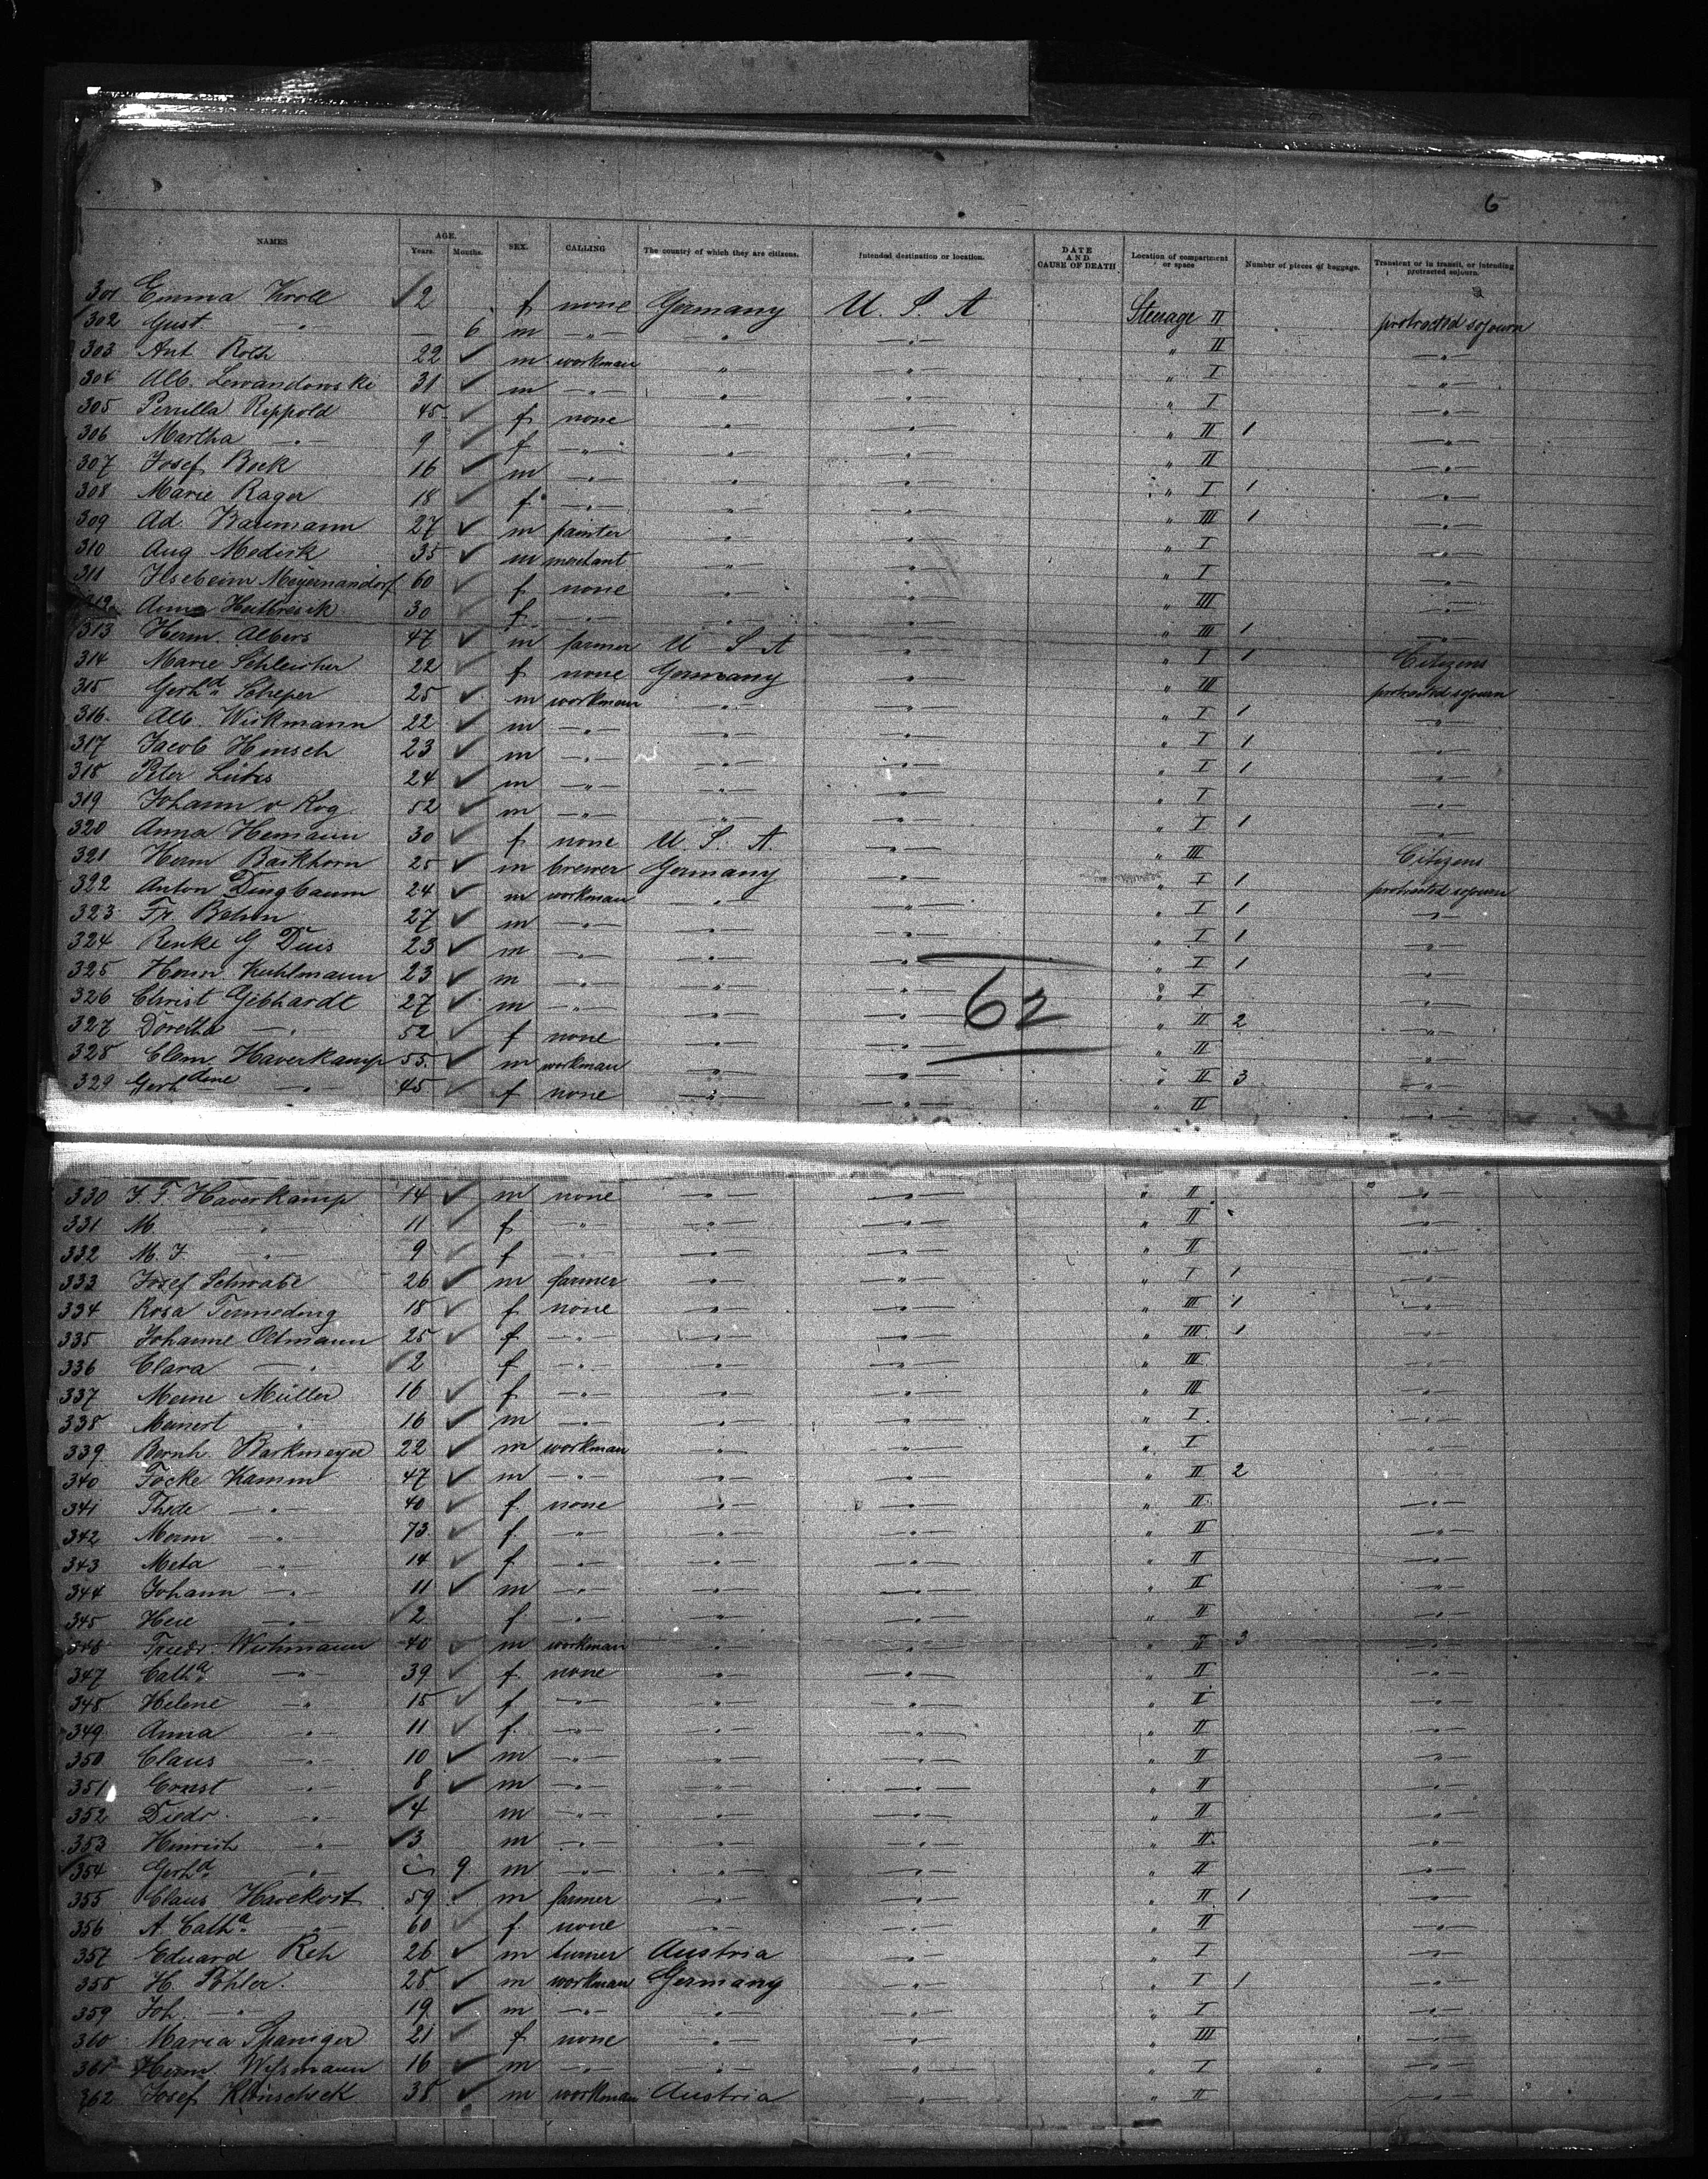 6
NAMES AGE. Years. Months. SEX. CALLING The country of which they are citizens. Intended destination or location. DATE AND CAUSE OF DEATH Location of compartment or space Number of pieces of baggage. Transient or in transit, or intending protracted sojourn.
301 Emma Kroll 2 f none Germany U. S. A Steerage II protracted sojourn
302 Gust —"— — 6 m —"— —"— —"— " II —"—
303 Ant. Roth 22 m workman " —"— " I —"—
304 Alb. Lewandowski 31 m —"— —"— —"— " I —"—
305 Perulla Rippold 45 f none —"— —"— " II 1 —"—
306 Martha —"— 9 f —"— —"— —"— " II —"—
307 Josef Bock 16 m —"— —"— —"— " I 1 —"—
308 Marie Rager 18 f —"— —"— —"— " III 1 —"—
309 Ad. Baumann 27 m painter —"— —"— " I —"—
310 Aug Medick 35 m merchant —"— —"— " I —"—
311 Ilsebein Meyernandorf 60 f none —"— —"— " III —"—
312 Anna 30 f —"— —"— —"— " III 1 —"—
313 Herm. Albers 47 m farmer U S A —"— " I 1 Citizens
314 Marie Schleicher 22 f none Germany —"— " III protracted sojourn
315 Gerhd Scheper 25 m workman —"— —"— " I 1 —"—
316. Alb. Wickmann 22 m —"— —"— —"— " I 1 —"—
317 Jacob Hinsch 23 m —"— —"— —"— " I 1 —"—
318 Peter 24 m —"— —"— —"— " I —"—
319 Johann v Kog 52 m —"— —"— —"— " I 1 —"—
320 Anna Hemann 30 f none U. S. A. —"— " III Citizens
321 Herm Barkhorn 25 m brewer Germany —"— " I 1 protracted sojourn
322 Anton Dingbaum 24 m workman —"— —"— " I 1 —"—
323 Fr. Behm 27 m —"— —"— —"— " I 1 —"—
324 Renke G Duis 23 m —"— —"— —"— " I 1 —"—
325 Herm. Kuhlmann 23 m —"— —"— —"— " I —"—
62
326 Christ Gebhardt 27 m —"— —"— —"— " II 2 —"—
327 Doretha —"— 52 f none —"— —"— " II —"—
328 Clem. Haverkamp 55. m workman —"— —"— " II 3 —"—
329 Gerhdine —"— 45 f none —"— —"— " II —"—
330 J. F. Haverkamp 14 m none —"— —"— " II —"—
331 M —"— 11 f —"— —"— —"— " II —"—
332 M. J —"— 9 f —"— —"— —"— " II —"—
333 Josef Schwabe 26 m farmer —"— —"— " I 1 —"—
334 Rosa Termeding 18 f none —"— —"— " III 1 —"—
335 Johanne Oltmann 25 f —"— —"— —"— " III 1 —"—
336 Clara —"— 2 f —"— —"— —"— " III —"—
337 Meine Müller 16 f —"— —"— —"— " III —"—
338 Meinert —"— 16 m —"— —"— —"— " I —"—
339 Bernh. Barkmeyer 22 m workman —"— —"— " I —"—
340 Focke Kamm 47 m —"— —"— —"— " II 2 —"—
341 Thede —"— 40 f none —"— —"— " II —"—
342 —"— 73 f —"— —"— —"— " II —"—
343 Meta —"— 14 f —"— —"— —"— " II —"—
344 Johann —"— 11 m —"— —"— —"— " II —"—
345 —"— 2 f —"— —"— —"— " II —"—
346 Friedr. Wichmann 40 m workman —"— —"— " II 3 —"—
347 Catha —"— 39 f none —"— —"— " II —"—
348 Helene —"— 15 f —"— —"— —"— " II —"—
349 Anna —"— 11 f —"— —"— —"— " II —"—
350 Claus —"— 10 m —"— —"— —"— " II —"—
351 Ernst —"— 8 m —"— —"— —"— " II —"—
352 Diedr. —"— 4 m —"— —"— —"— " II —"—
353 Hinrich —"— 3 m —"— —"— —"— " II —"—
354 Gerhd —"— 9 m —"— —"— —"— " II —"—
355 Claus Havekost 59 m farmer —"— —"— " II 1 —"—
356 A. Catha —"— 60 f none —"— —"— " II —"—
357 Eduard Reh 26 m turner Austria —"— " I —"—
358 H. Pöhler. 25 m workman Germany —"— " I 1 —"—
359 Joh. —"— 19 m —"— —"— —"— " I —"—
360 Maria Spaniger 21 f none —"— —"— " III —"—
361 Herm Wissmann 16 m —"— —"— —"— " I " —"—
362 Josef 38 m workman Austria " " II —"—